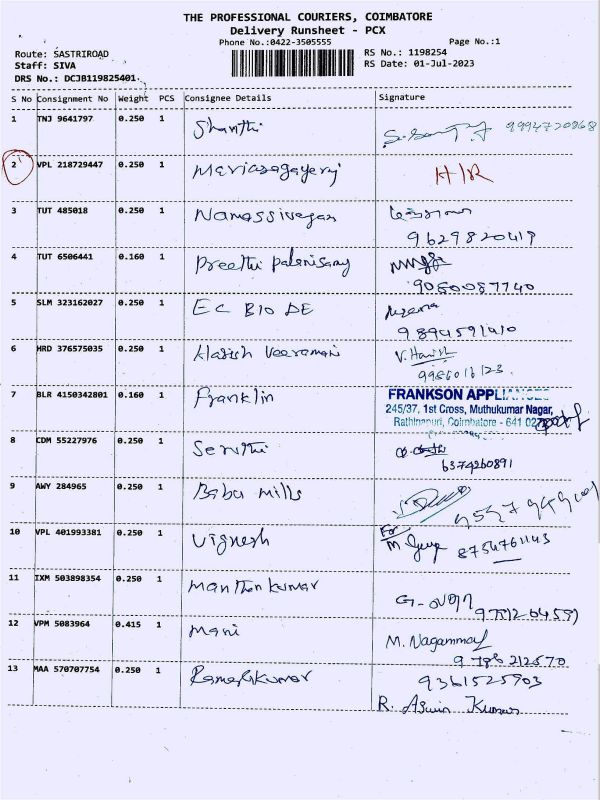 THE PROFESSIONAL COURIERS, COIMBATORE
Delivery Runsheet - PCX
Phone No.:0422-3505555 Page No.:1
Route: SASTRIROAD RS No.: 1198254
Staff: SIVA RS Date: 01-Jul-2023
DRS No.: DCJB119825401
S No Consignment No Weight PCS Consignee Details Signature
1 TNJ 9641797 0.250 1 Shanthi
2 VPL 218729447 0.250 1 H/R
3 TUT 485018 0.250 1 Namassivayam
9629820419
4 TUT 6506441 0.160 1 Preethi palanisamy
9080087740
5 SLM 323162027 0.250 1 EC BIO DE
9894591410
6 HRD 376575035 0.250 1 Harish Veeramani V. Harish
7 BLR 4150342801 0.160 1 Franklin FRANKSON APPLIANCES
245/37, 1st Cross, Muthukumar Nagar,
Rathinapuri, Coimbatore - 641 027
8 CDM 55227976 0.250 1
6374260891
9 AWY 284965 0.250 1 Baba mills
10 VPL 401993381 0.250 1 Vignesh For
8754761143
11 IXM 503898354 0.250 1
12 VPM 5083964 0.415 1 Mani M. Nagammal
9786212570
13 MAA 570707754 0.250 1 Rameshkumar 9361525903
R. Aswin Kumar